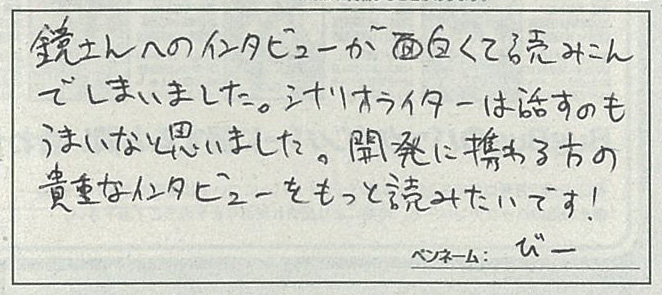 鏡さんへのインタビューが面白くて読みこん
でしまいました。シナリオライターは話すのも
うまいなと思いました。開発に携わる方の
貴重なインタビューをもっと読みたいです!
ペンネーム: びー